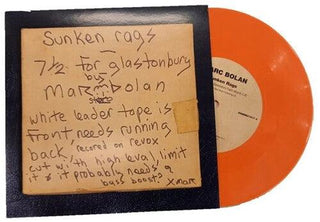 Sunken rags
7½ for glastonbury
by
Marc Bolan
white leader tape is
Front needs running
back, recored on revox
cut with high level limit
it & it probably needs a
bass boost. x marc
MARC BOLAN
Sunken Rags